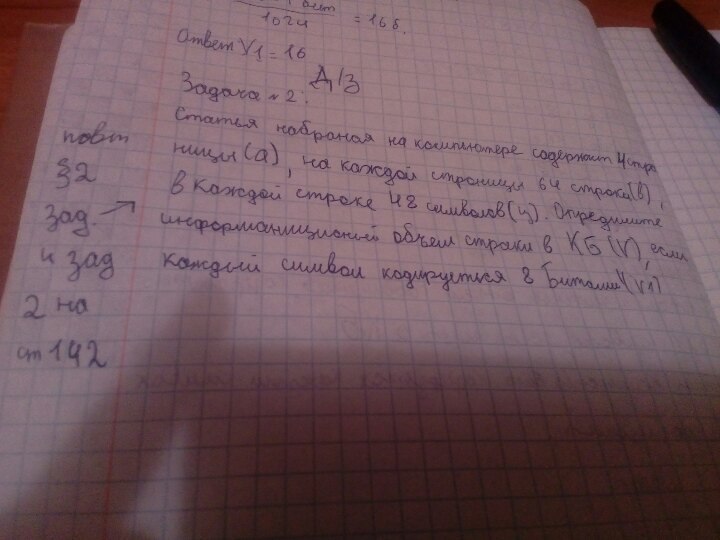 бит
1024 = 16 б.
Ответ V1 = 16
Д/З
Задача № 2.
Статья набраная на компьютере содержит 4 стра
ницы (а), на каждой страницы 64 строки (в),
в каждой строке 48 символов (ц). Опредилите
информаниционый объем строки в КБ (V), если
каждый символ кодируеться 8 Битами (V1)
повт
§2
зад. →
и зад
2 на
ст 142